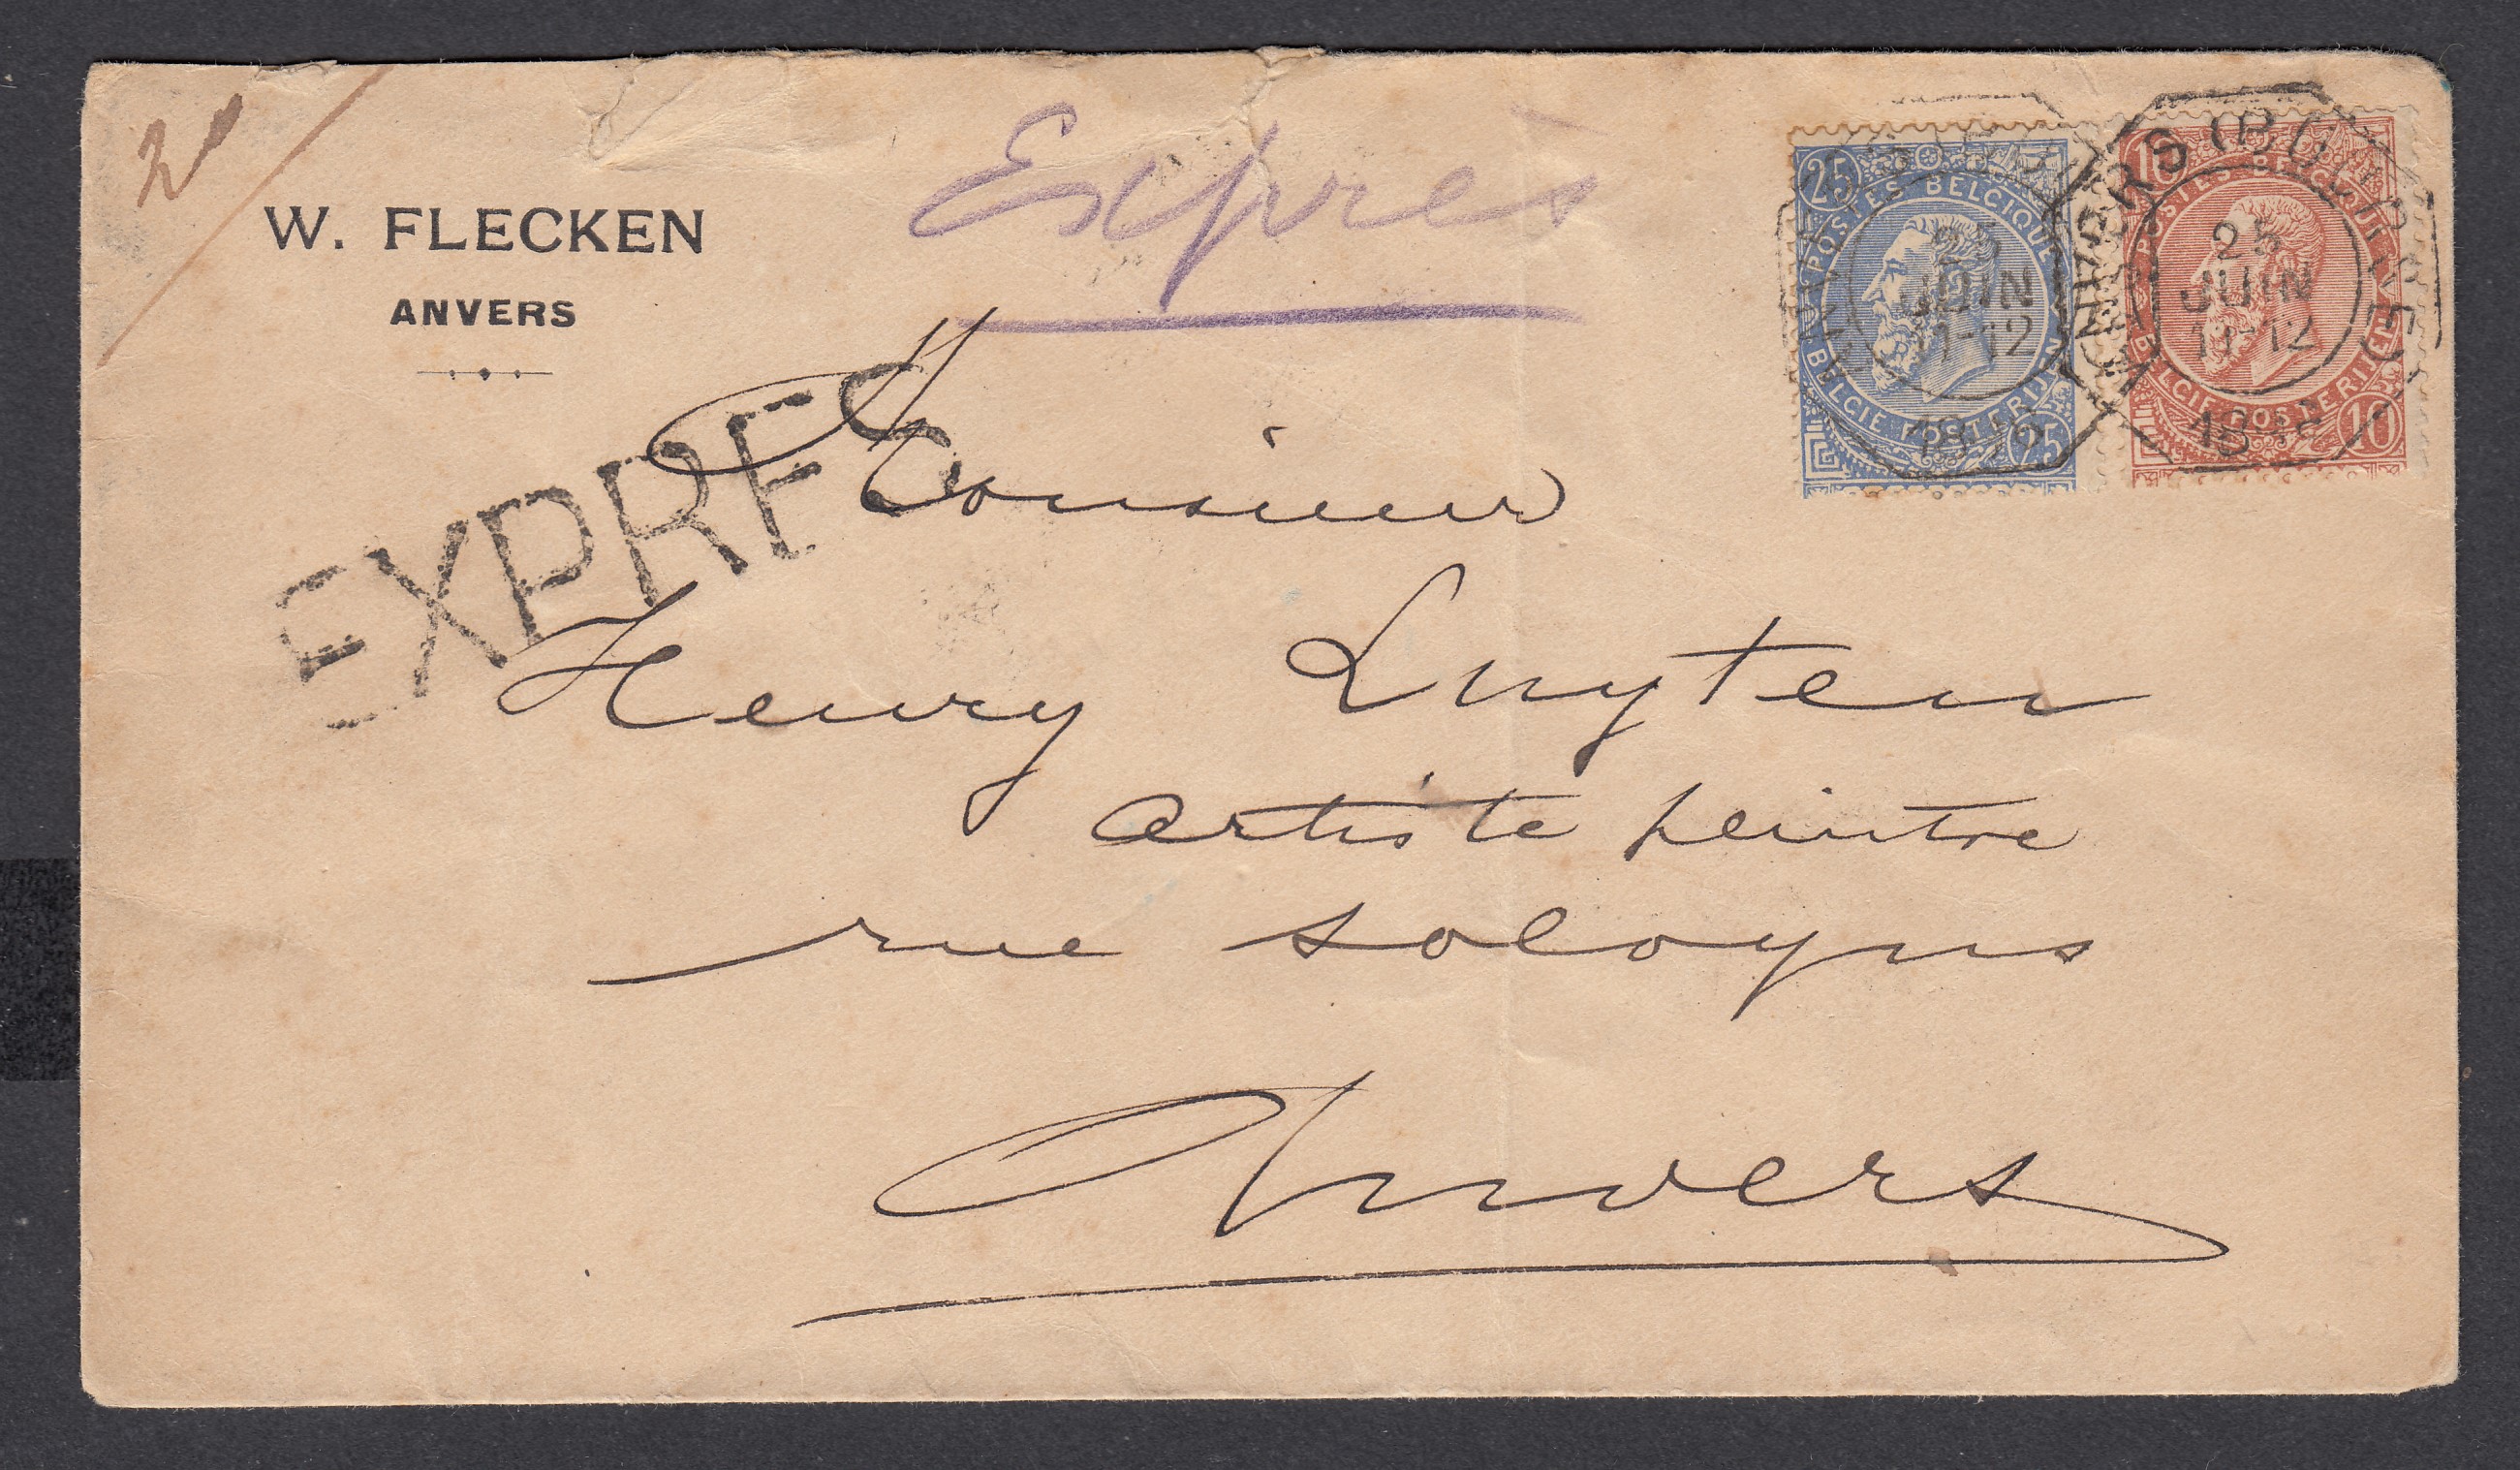 W. FLECKEN
ANVERS
Exprès
EXPRES
Monsieur
Henry Luyten
artiste peintre
rue soloyns
Anvers
25 POSTES BELGIQUE
BELGIË POSTERIJEN 25
25
JUIN
11-12
10 POSTES BELGIQUE
BELGIË POSTERIJEN 10
ANVERS (BOURSE)
25
JUIN
11-12